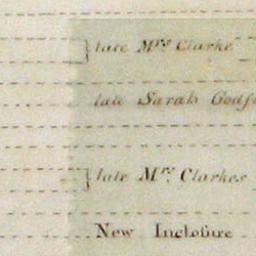 late Mrs. Clarke
late Sarah
late Mrs. Clarkes
New Inclosure